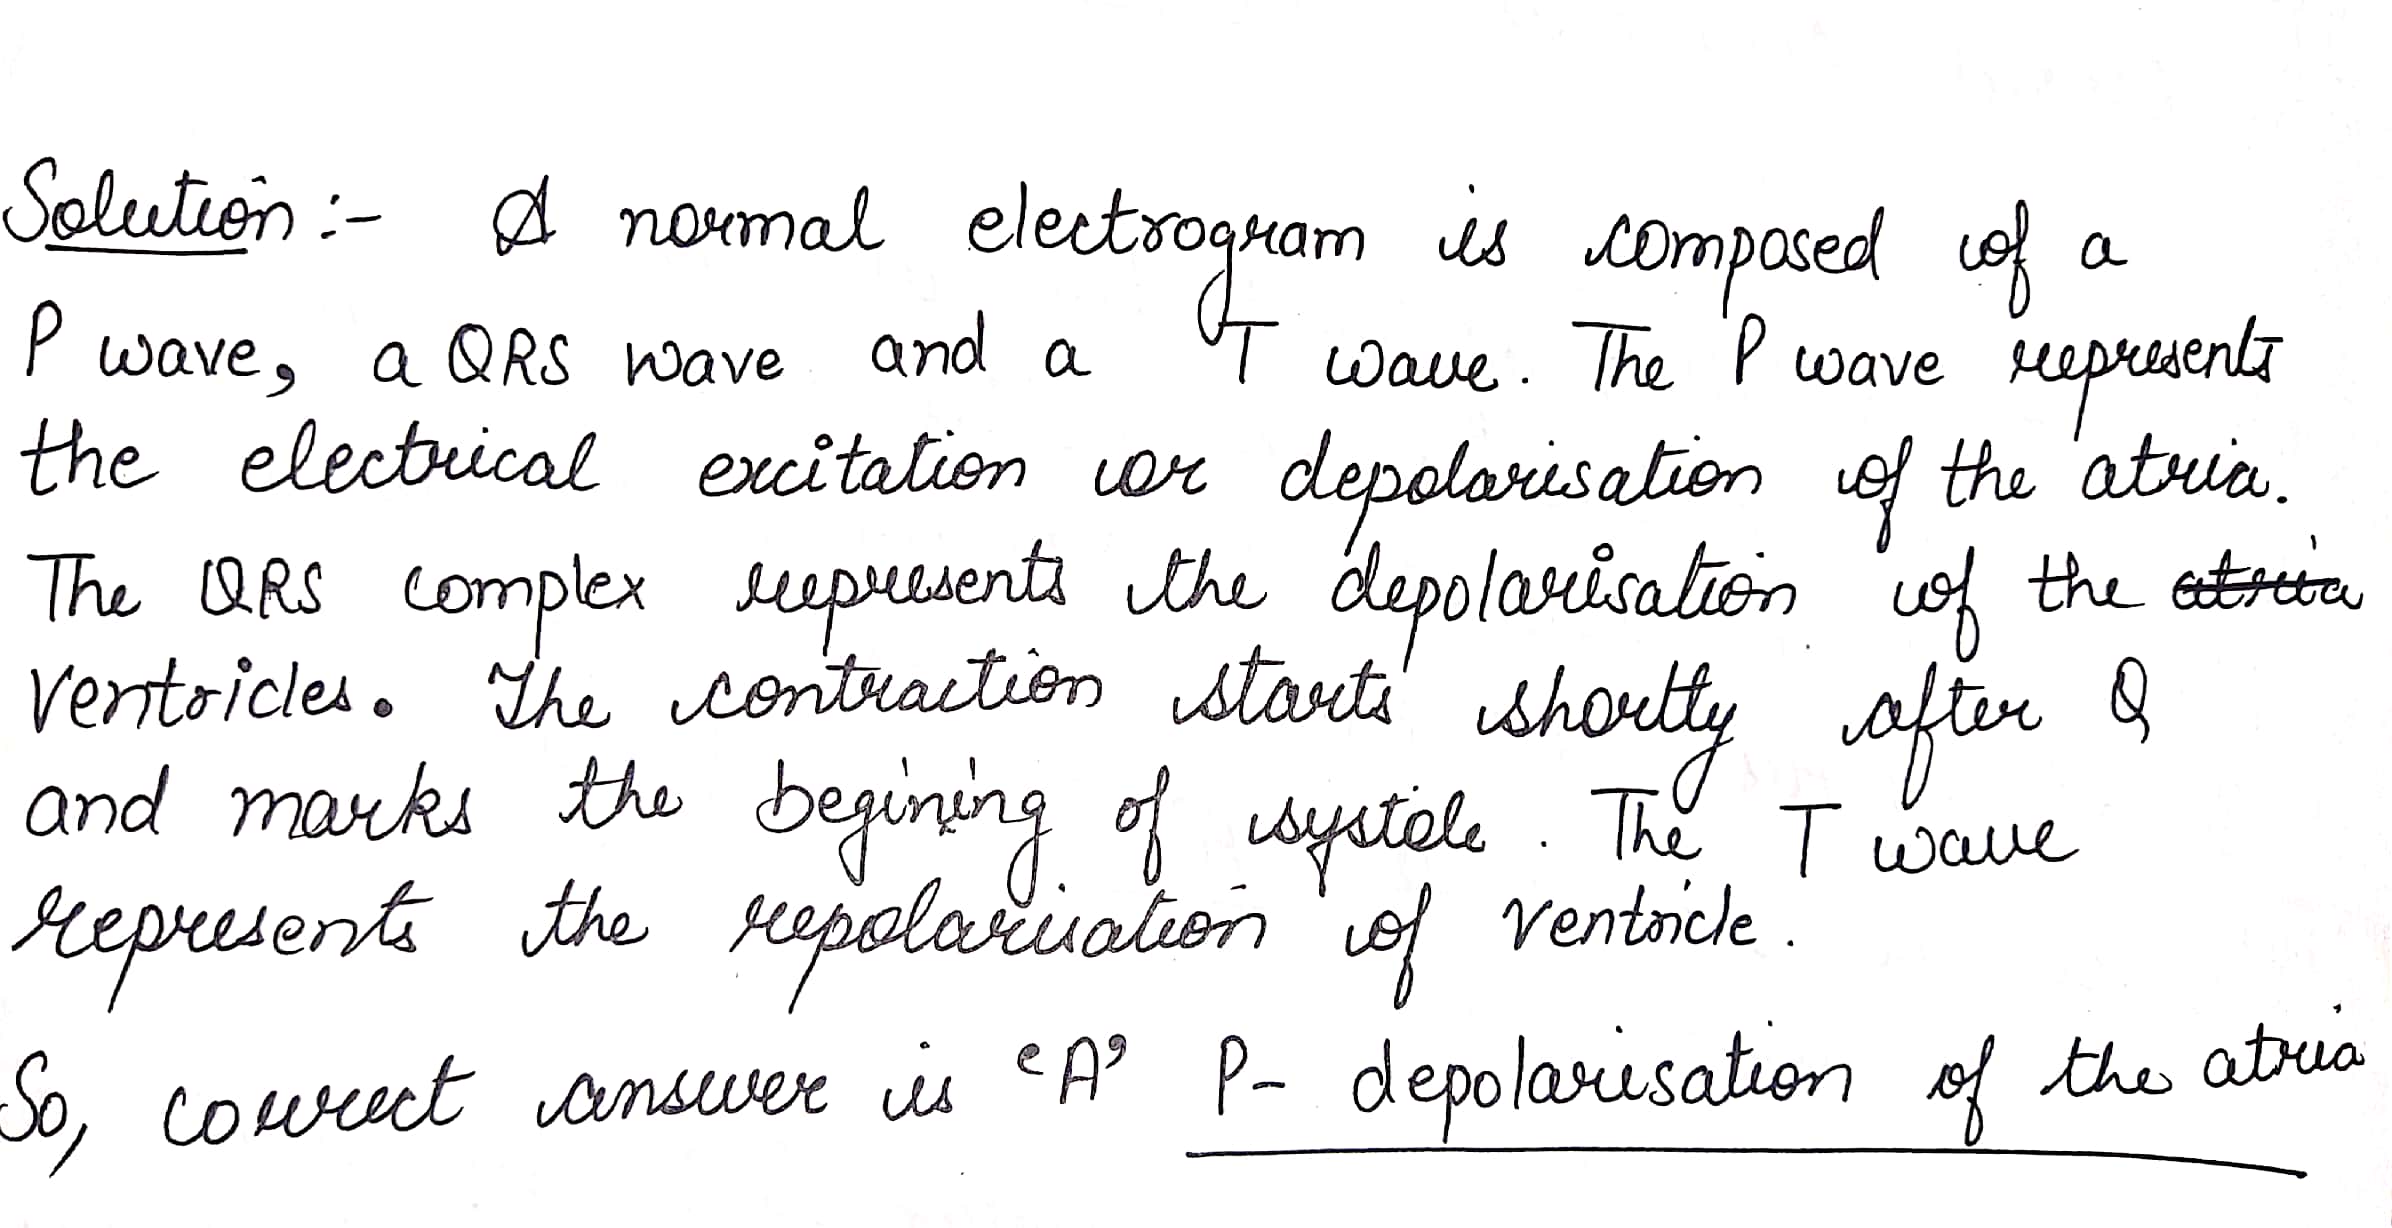 Solution :- A normal electrogram is composed of a
P wave, a QRS wave and a T wave. The P wave represents
the electrical excitation or depolarisation of the atria.
The QRS complex represents the depolarisation of the atria
Ventricles. The contraction starts shortly after Q
and marks the begining of systole. The T wave
represents the repolarisation of ventricle.
So, correct answer is 'A' P- depolarisation of the atria